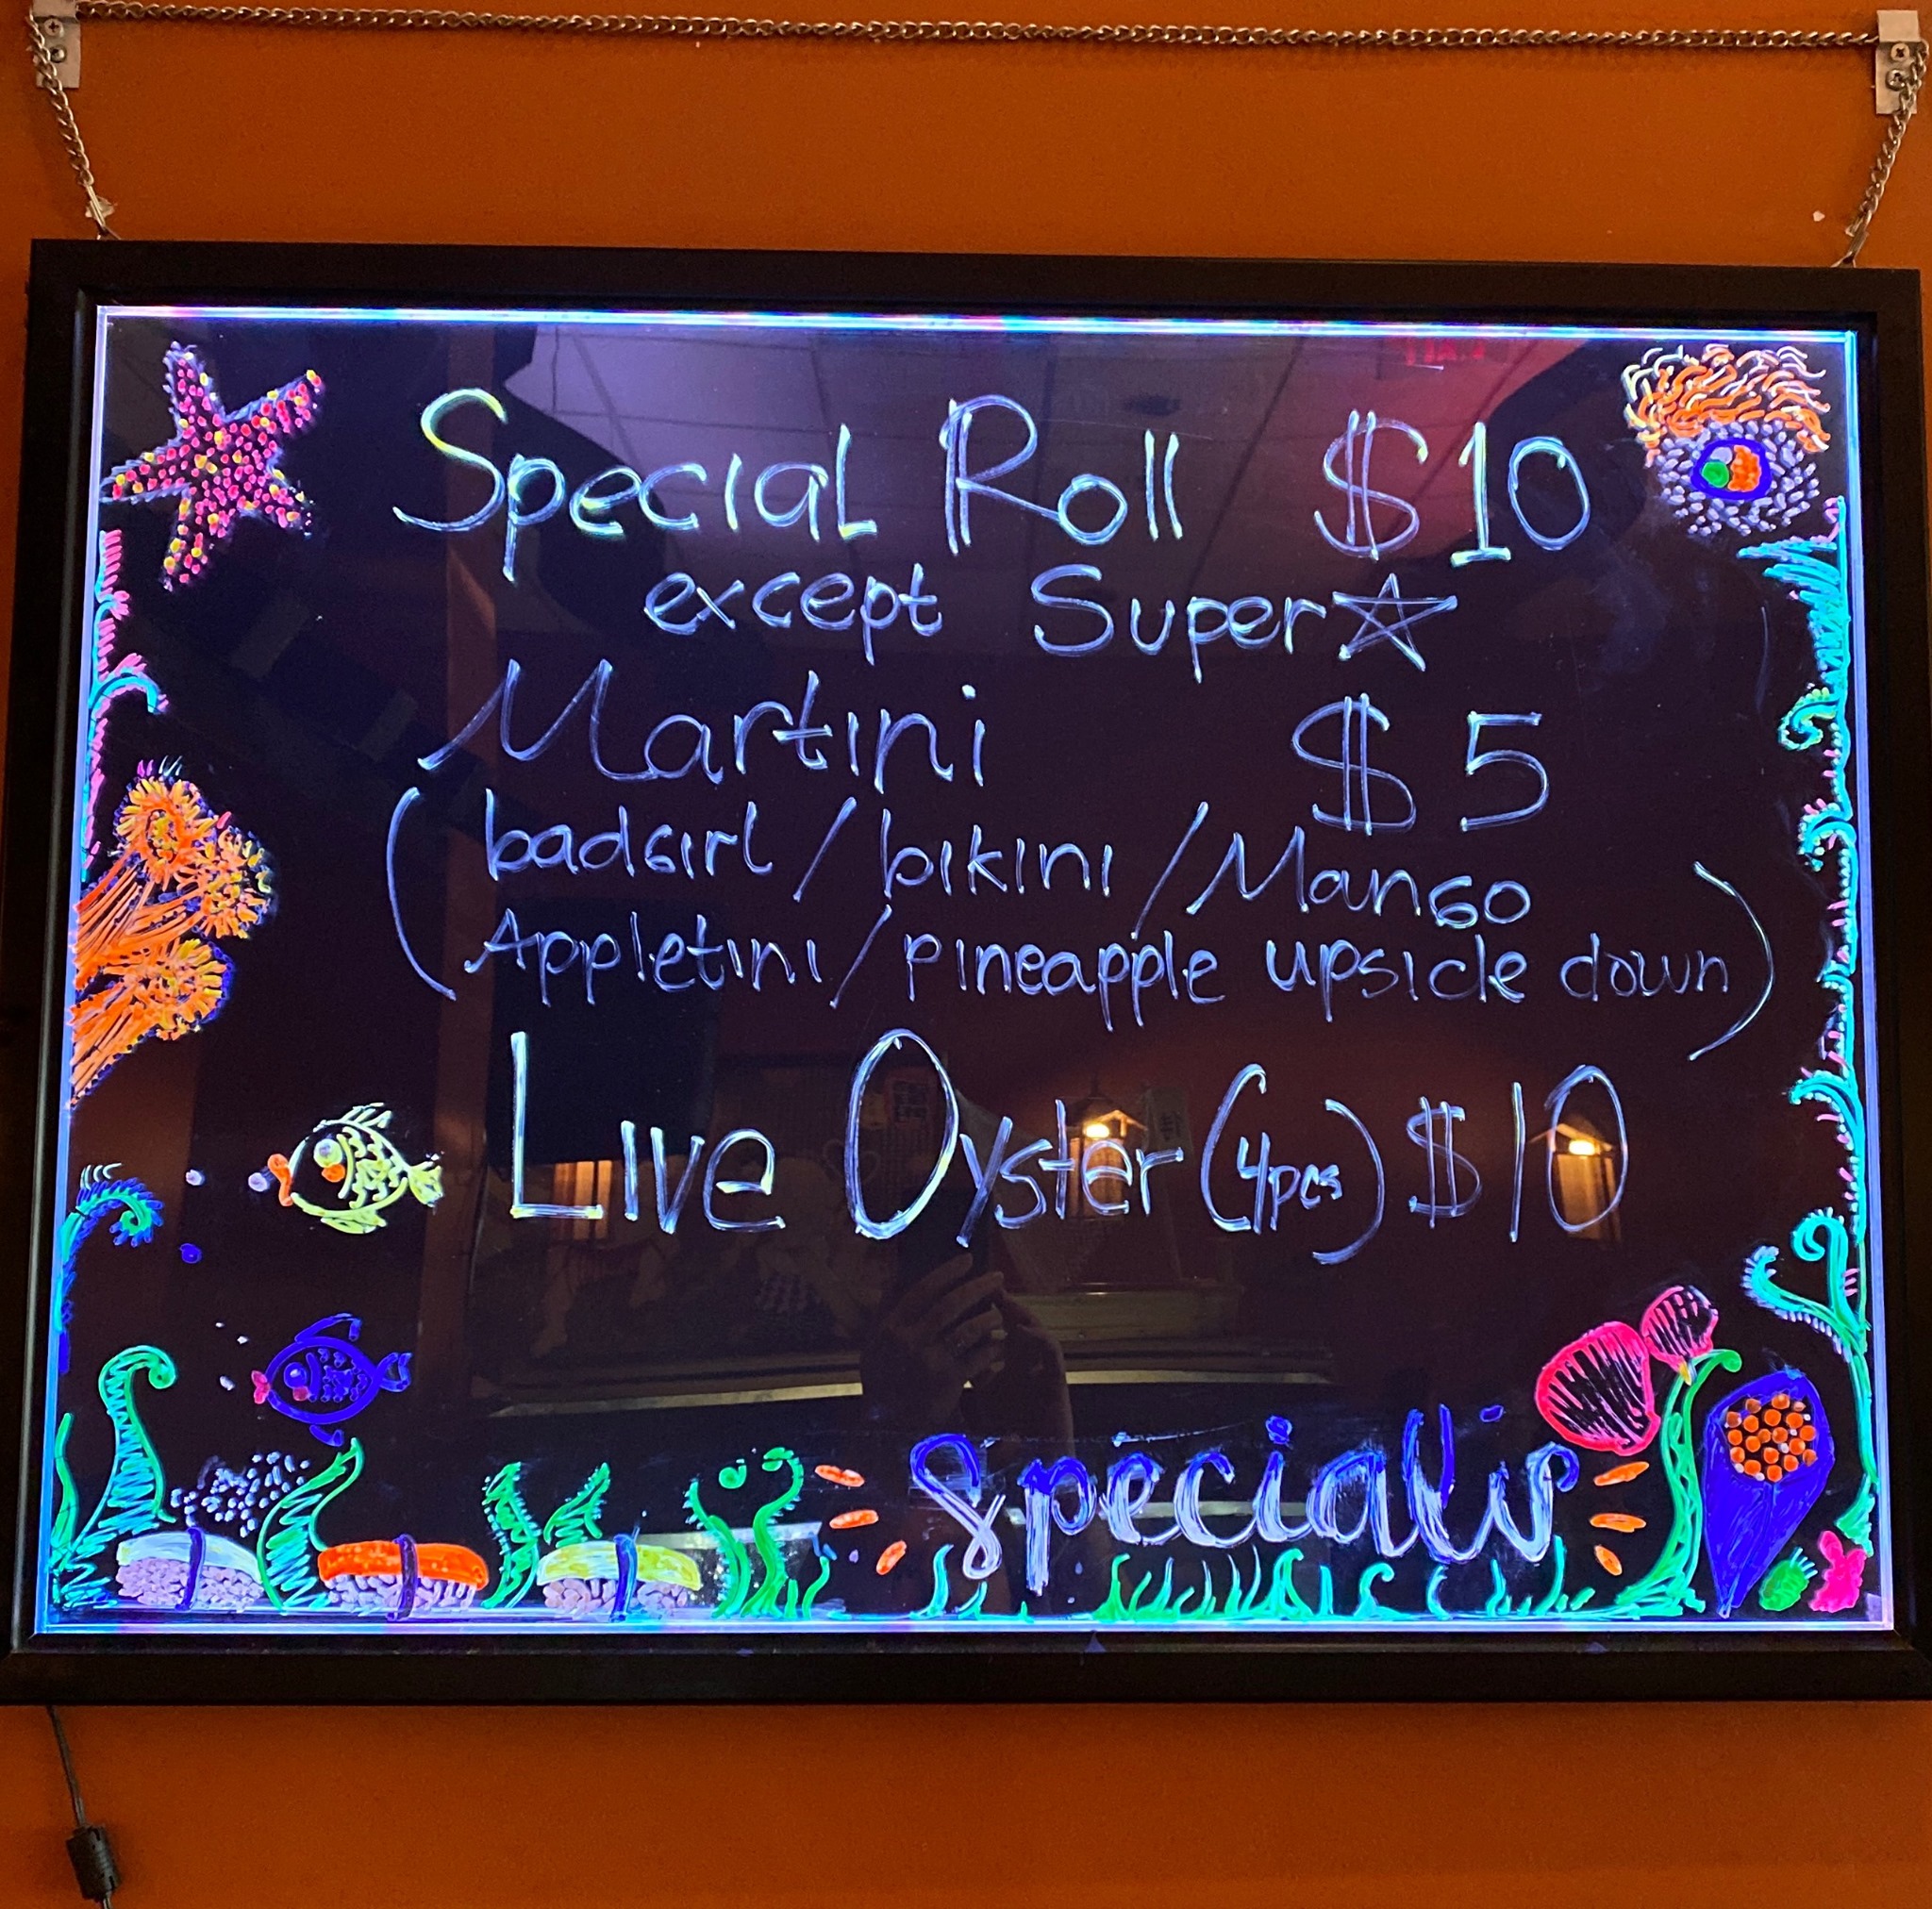 Special Roll $10
except Super☆
Martini $5
(badgirl/bikini/Mango
Appletini/pineapple upside down)
Live Oyster (4pcs) $10
Specials